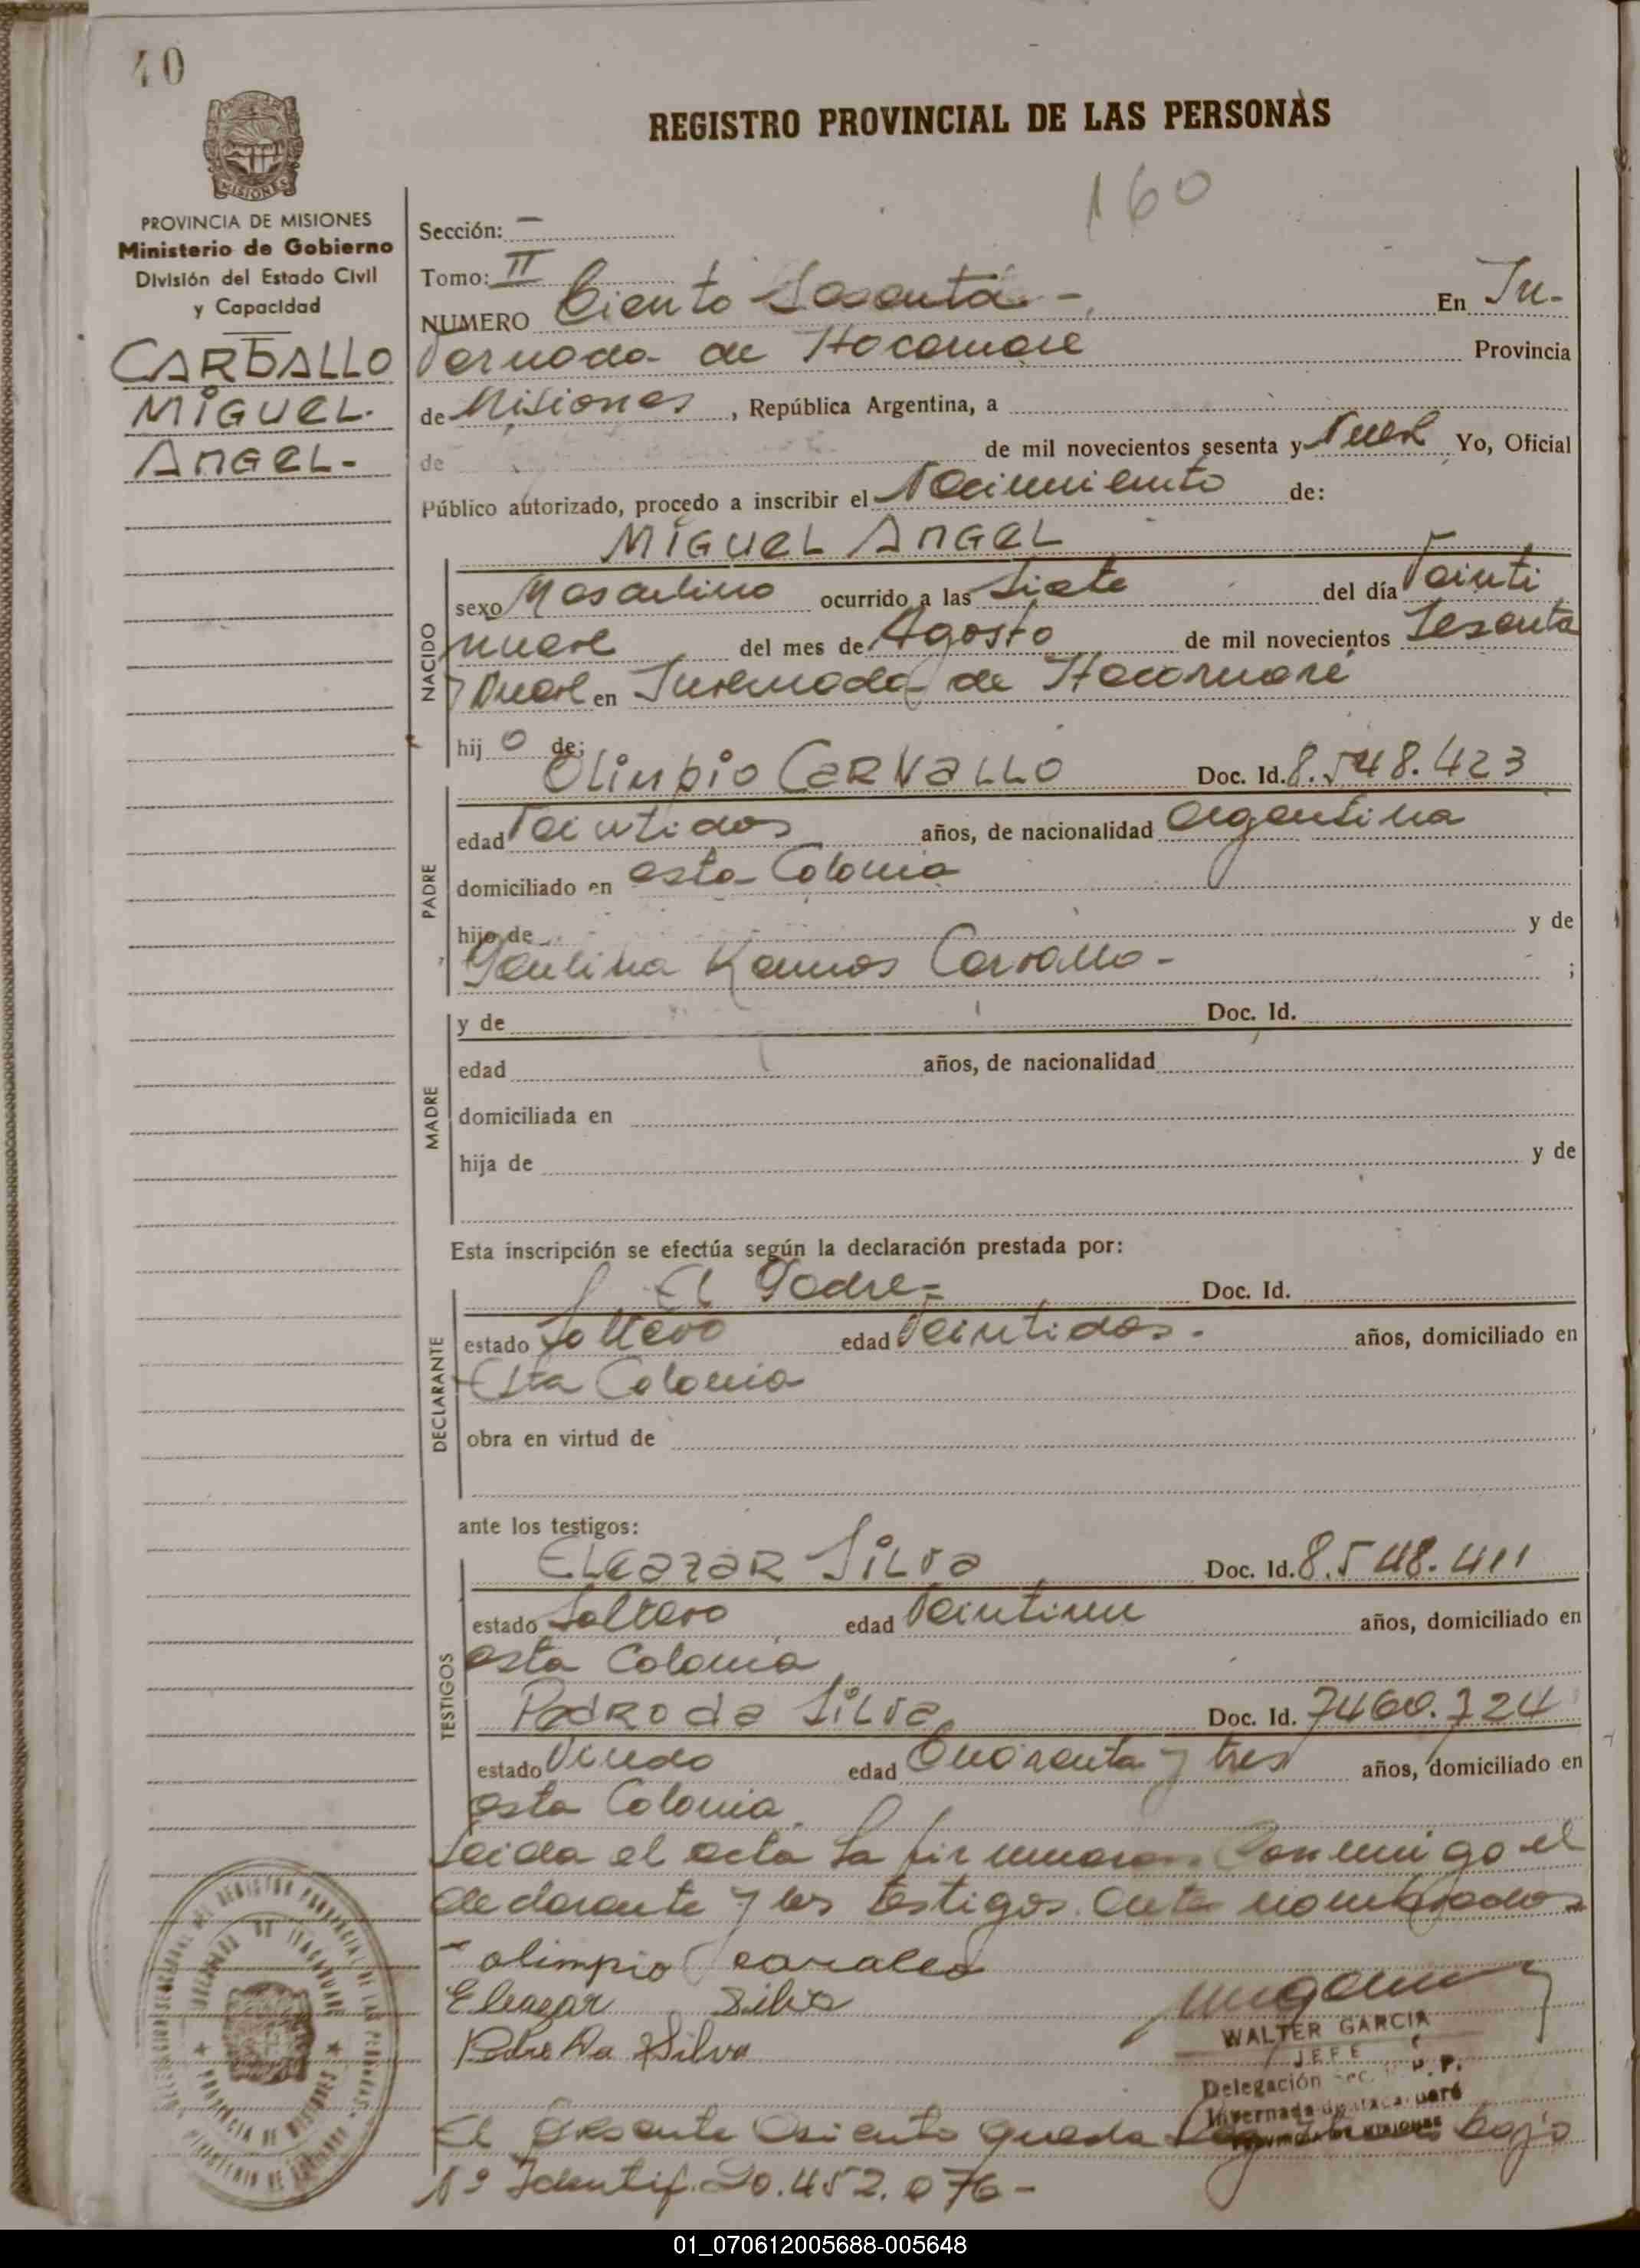 40
REGISTRO PROVINCIAL DE LAS PERSONAS
160
MISIONES
PROVINCIA DE MISIONES
Ministerio de Gobierno
División del Estado Civil
y Capacidad
CARBALLO
MIGUEL.
ANGEL-
Sección: -
Tomo: II
NUMERO Ciento Sesenta - En In-
vernada de Itacaruare Provincia
de Misiones, República Argentina, a
de de mil novecientos sesenta y nueve Yo, Oficial
Público autorizado, procedo a inscribir el Nacimiento de:
MIGUEL ANGEL
NACIDO
sexo Masculino ocurrido a las Siete del día Veinti
nueve del mes de Agosto de mil novecientos Sesenta
y Nueve en Invernada de Itacaruaré
hijo de:
Olimpio CARVALLO Doc. Id. 8.548.423
PADRE
edad Veintidos años, de nacionalidad Argentina
domiciliado en esta Colonia
hijo de y de
Paulina Ramos Carvallo - ;
MADRE
y de Doc. Id.
edad años, de nacionalidad
domiciliada en
hija de y de
Esta inscripción se efectúa según la declaración prestada por:
DECLARANTE
El Padre= Doc. Id.
estado Soltero edad Veintidos. años, domiciliado en
Esta Colonia
obra en virtud de
ante los testigos:
TESTIGOS
ELEAZAR SILVA Doc. Id. 8.548.411
estado Soltero edad Veintiun años, domiciliado en
esta Colonia
PEDRO da SILVA Doc. Id. 7460.724
estado Viudo edad Cuarenta y tres años, domiciliado en
esta Colonia
Leida el acta La firmaron Conmigo el
declarante y los testigos ante nombrados
- olimpio carvallo
Eleazar Silva
Pedro Da Silva
WALTER GARCIA
JEFE
Delegación Sec. R. P. P.
Invernada de Itacaruaré
Provincia de Misiones
El Presente Asiento queda bajo
Nº Identif. 20.452.076-
01_070612005688-005648